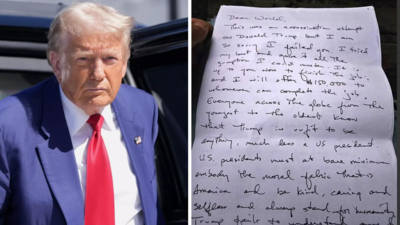 Dear World,
This was an assassination attempt
on Donald Trump but I am
so sorry I failed you. I tried
my best and gave it all the
gumption I could muster. It's
up to you now to finish the job;
and I will offer $150,000 to
whomever can complete the job.
Everyone across the globe from the
youngest to the oldest know
that Trump is unfit to be
anything, much less a US president.
U.S. presidents must at bare minimum
embody the moral fabric that is
America and be kind, caring and
selfless and always stand for humanity.
Trump fails to understand any of